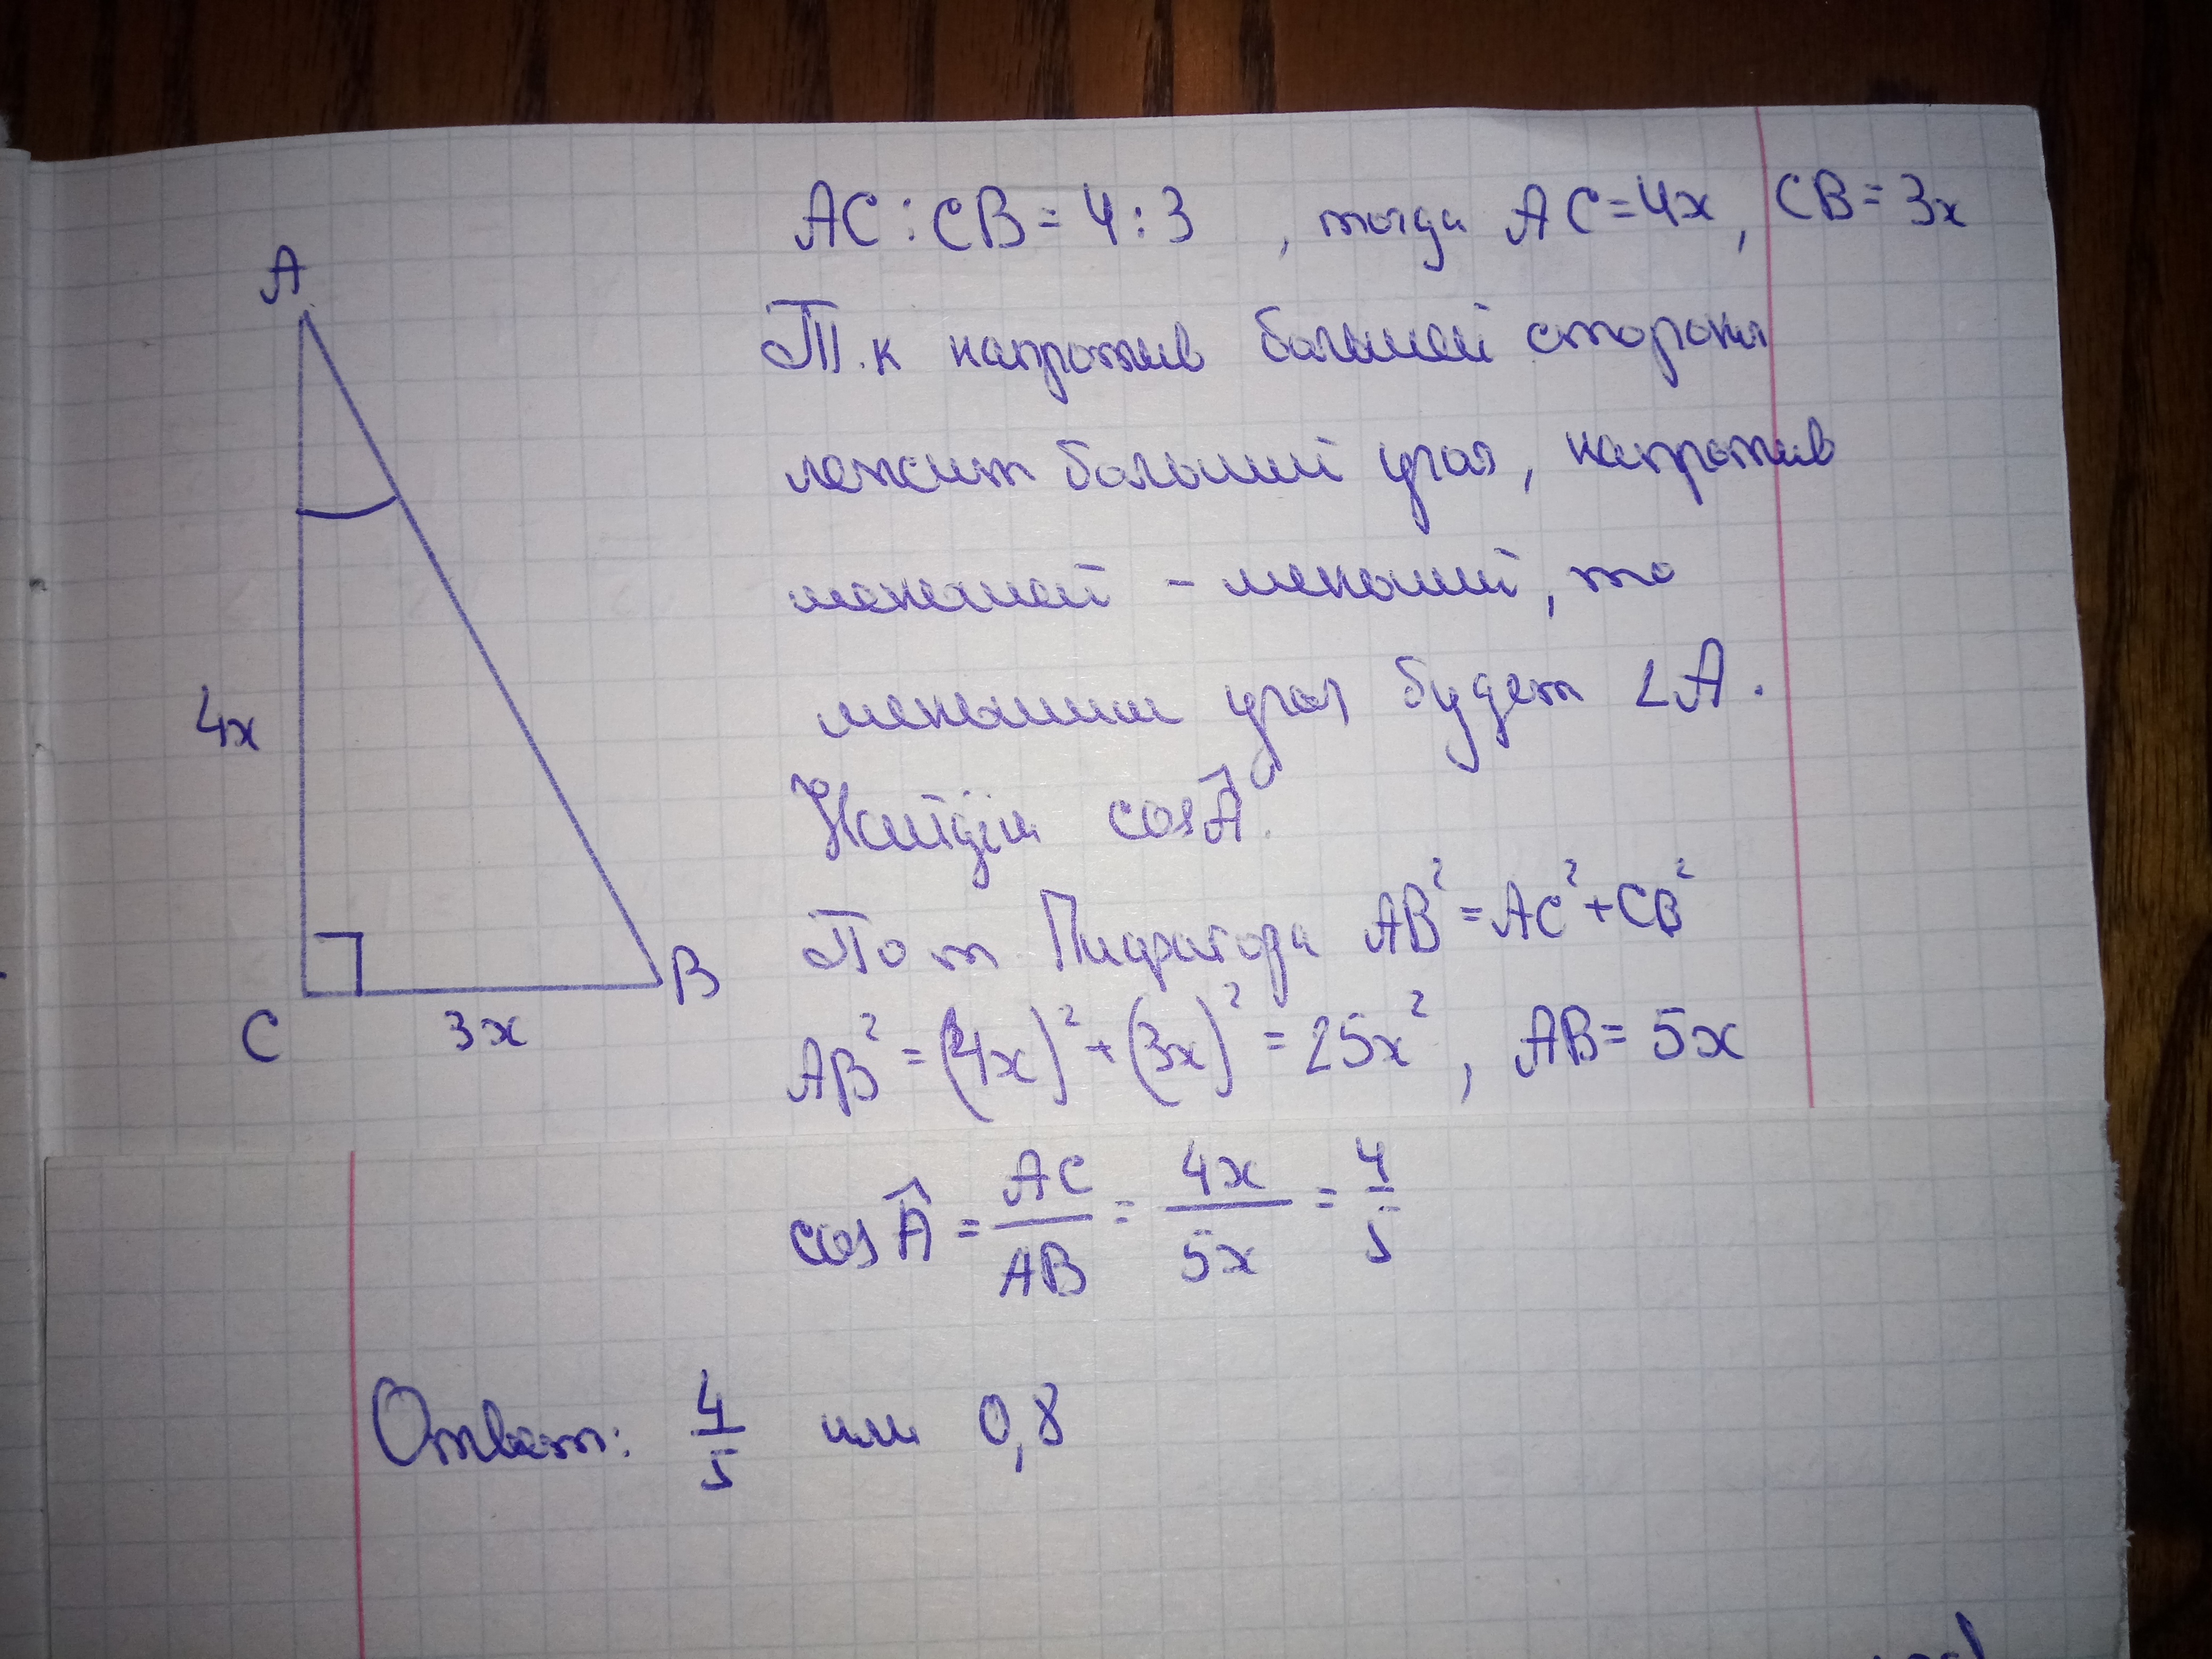 AC : CB = 4 : 3 , тогда AC = 4x, CB = 3x
Т.к напротив большей стороны
лежит больший угол, напротив
меньшей - меньший, то
меньшим углом будет ∠A.
Найдём cos Â.
По т. Пифагора AB² = AC² + CB²
AB² = (4x)² + (3x)² = 25x² , AB = 5x
cos Â = AC/AB = 4x/5x = 4/5
Ответ: 4/5 или 0,8
A
4x
C
3x
B